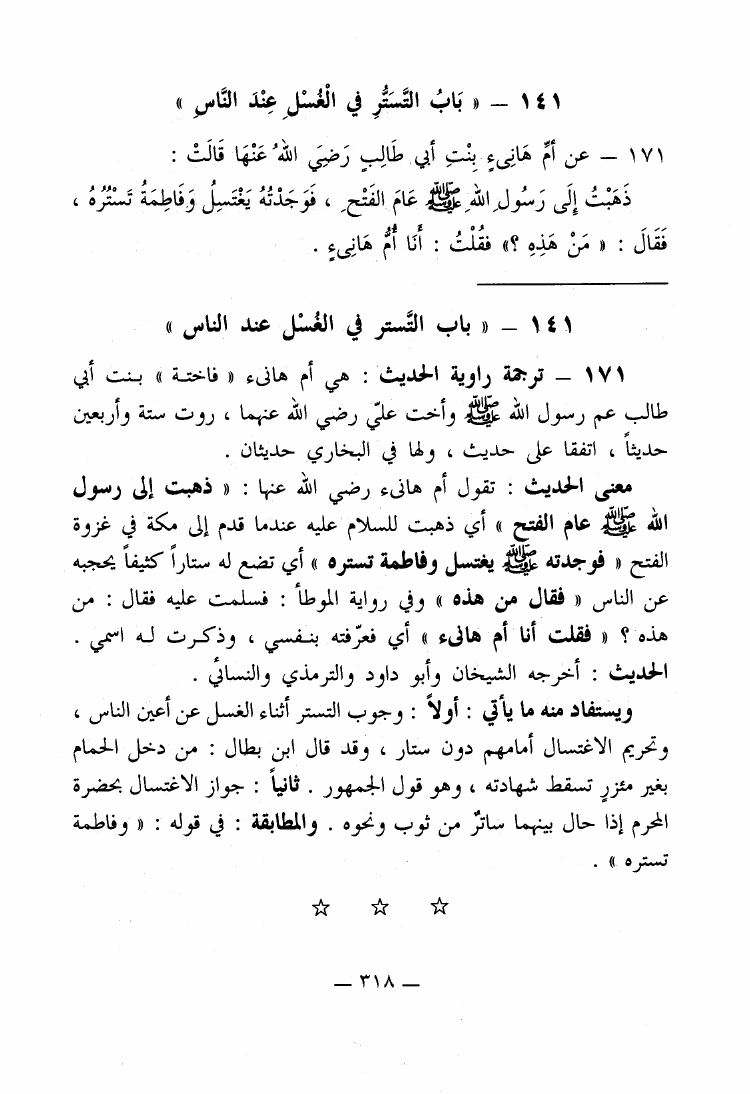 ١٤١ – « بَابُ التَّسَتُّرِ في الْغُسْلِ عِنْدَ النَّاسِ »
١٧١ – عن أمِّ هَانِىءٍ بِنْتِ أبي طَالِبٍ رَضِيَ اللهُ عَنْهَا قَالَتْ :
ذَهَبْتُ إلَى رَسُولِ اللهِ ﷺ عَامَ الفَتْحِ ، فَوَجَدْتُهُ يَغْتَسِلُ وَفَاطِمَةُ تَسْتُرُهُ ،
فَقَالَ : « مَنْ هَذِهِ ؟» فقُلْتُ : أَنَا أُمُّ هَانِىءٍ .
١٤١ – « باب التَّستر في الغُسْل عند الناس »
١٧١ – ترجمة راوية الحديث : هي أم هانىء « فاختـة » بـنت أبي
طالب عم رسول الله ﷺ وأخت عليّ رضي الله عنهما ، روت ستة وأربعين
حديثاً ، اتفقا على حديث ، ولها في البخاري حديثان .
معنى الحديث : تقول أم هانىء رضي الله عنها : « ذهبت إلى رسول
الله ﷺ عام الفتح » أي ذهبت للسلام عليه عندما قدم إلى مكة في غزوة
الفتح « فوجدته ﷺ يغتسل وفاطمة تستره » أي تضع له ستاراً كثيفاً يحجبه
عن الناس « فقال من هذه » وفي رواية الموطأ : فسلمت عليه فقال : من
هذه ؟ « فقلت أنا أم هانىء » أي فعرّفته بنـفسي ، وذكـرت لـه اسمي .
الحديث : أخرجه الشيخان وأبو داود والترمذي والنسائي .
ويستفاد منه ما يأتي : أولاً : وجوب التستر أثناء الغسل عن أعين الناس ،
وتحريم الاغتسال أمامهم دون ستار ، وقد قال ابن بطال : من دخل الحمام
بغير مئزرٍ تسقط شهادته ، وهو قول الجمهور . ثانياً : جواز الاغتسال بحضرة
المحرم إذا حال بينهما ساترٌ من ثوب ونحوه . والمطابقة : في قوله : « وفاطمة
تستره » .
☆ ☆ ☆
– ٣١٨ –